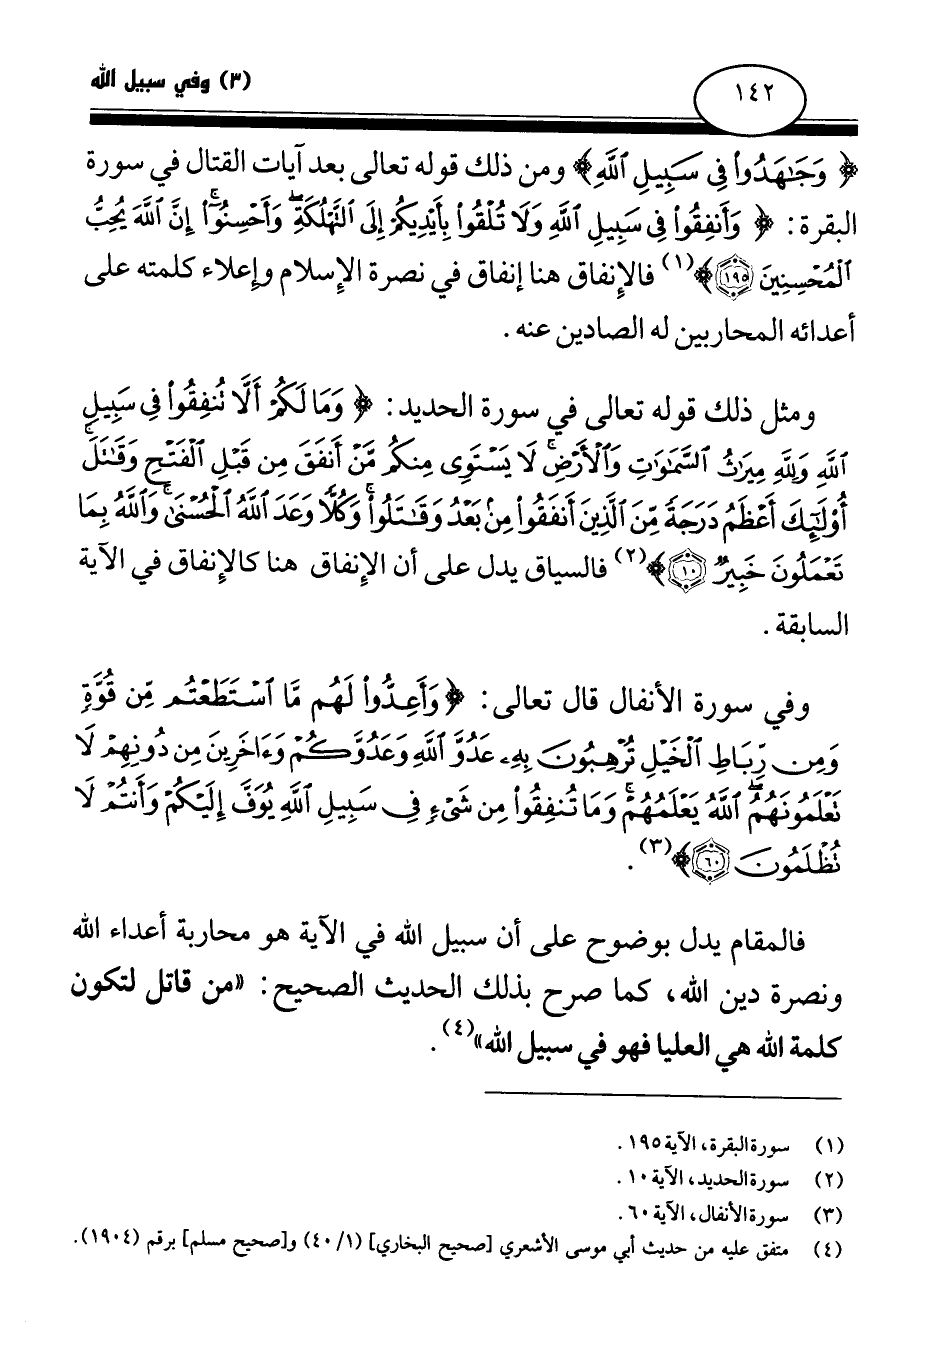 (٣) وفي سبيل الله
١٤٢
﴿ وَجَٰهَدُوا۟ فِى سَبِيلِ ٱللَّهِ﴾ ومن ذلك قوله تعالى بعد آيات القتال في سورة
البقرة: ﴿ وَأَنفِقُوا۟ فِى سَبِيلِ ٱللَّهِ وَلَا تُلْقُوا۟ بِأَيْدِيكُمْ إِلَى ٱلتَّهْلُكَةِ ۛ وَأَحْسِنُوٓا۟ ۛ إِنَّ ٱللَّهَ يُحِبُّ
ٱلْمُحْسِنِينَ ١٩٥﴾(١) فالإنفاق هنا إنفاق في نصرة الإسلام وإعلاء كلمته على
أعدائه المحاربين له الصادين عنه .
ومثل ذلك قوله تعالى في سورة الحديد: ﴿ وَمَا لَكُمْ أَلَّا تُنفِقُوا۟ فِى سَبِيلِ
ٱللَّهِ وَلِلَّهِ مِيرَٰثُ ٱلسَّمَٰوَٰتِ وَٱلْأَرْضِ ۚ لَا يَسْتَوِى مِنكُم مَّنْ أَنفَقَ مِن قَبْلِ ٱلْفَتْحِ وَقَٰتَلَ ۚ
أُو۟لَٰٓئِكَ أَعْظَمُ دَرَجَةً مِّنَ ٱلَّذِينَ أَنفَقُوا۟ مِنۢ بَعْدُ وَقَٰتَلُوا۟ ۚ وَكُلًّا وَعَدَ ٱللَّهُ ٱلْحُسْنَىٰ ۚ وَٱللَّهُ بِمَا
تَعْمَلُونَ خَبِيرٌ ١٠﴾(٢) فالسياق يدل على أن الإنفاق هنا كالإنفاق في الآية
السابقة .
وفي سورة الأنفال قال تعالى: ﴿ وَأَعِدُّوا۟ لَهُم مَّا ٱسْتَطَعْتُم مِّن قُوَّةٍ
وَمِن رِّبَاطِ ٱلْخَيْلِ تُرْهِبُونَ بِهِۦ عَدُوَّ ٱللَّهِ وَعَدُوَّكُمْ وَءَاخَرِينَ مِن دُونِهِمْ لَا
تَعْلَمُونَهُمُ ٱللَّهُ يَعْلَمُهُمْ ۚ وَمَا تُنفِقُوا۟ مِن شَىْءٍ فِى سَبِيلِ ٱللَّهِ يُوَفَّ إِلَيْكُمْ وَأَنتُمْ لَا
تُظْلَمُونَ ٦٠﴾(٣) .
فالمقام يدل بوضوح على أن سبيل الله في الآية هو محاربة أعداء الله
ونصرة دين الله، كما صرح بذلك الحديث الصحيح: «من قاتل لتكون
كلمة الله هي العليا فهو في سبيل الله»(٤) .
(١) سورة البقرة، الآية ١٩٥ .
(٢) سورة الحديد، الآية ١٠ .
(٣) سورة الأنفال، الآية ٦٠ .
(٤) متفق عليه من حديث أبي موسى الأشعري [صحيح البخاري] (٤٠/١) و[صحيح مسلم] برقم (١٩٠٤).